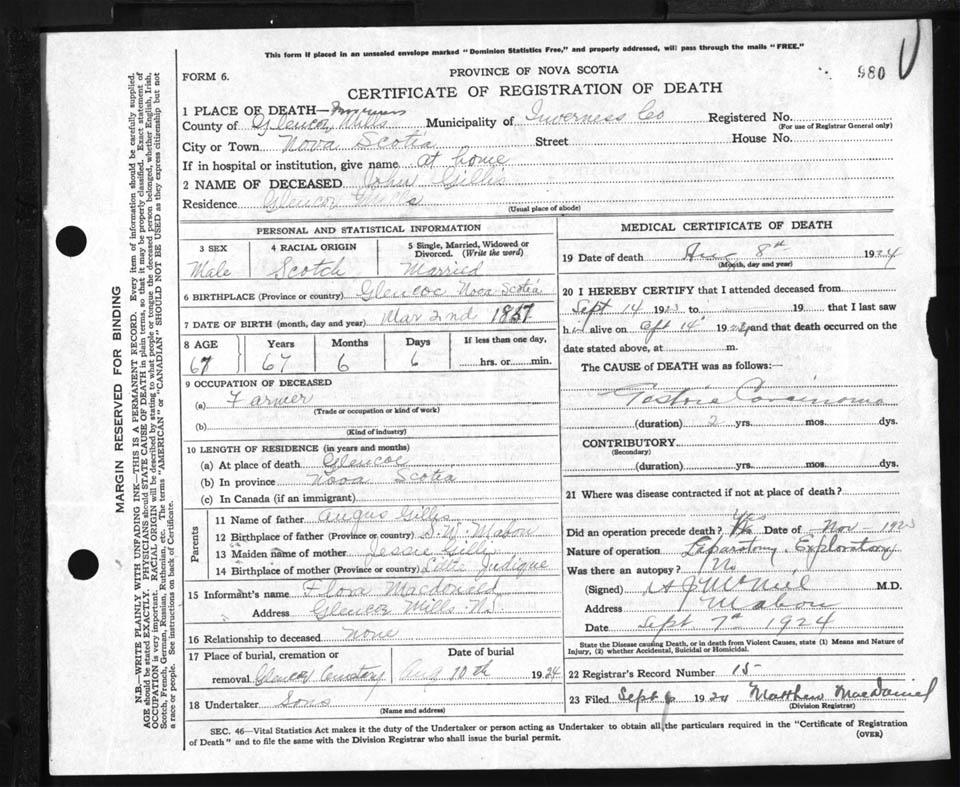 This form if placed in an unsealed envelope marked "Dominion Statistics Free," and properly addressed, will pass through the mails "FREE."
980
FORM 6.
PROVINCE OF NOVA SCOTIA
CERTIFICATE OF REGISTRATION OF DEATH
1 PLACE OF DEATH— Inverness
County of Glencoe Mills Municipality of Inverness Co Registered No.
(For use of Registrar General only)
City or Town Nova Scotia Street House No.
If in hospital or institution, give name at home
2 NAME OF DECEASED John Gillis
Residence Glencoe Mills
(Usual place of abode)
MARGIN RESERVED FOR BINDING
N.B.—WRITE PLAINLY WITH UNFADING INK—THIS IS A PERMANENT RECORD. Every item of information should be carefully supplied.
AGE should be stated EXACTLY. PHYSICIANS should STATE CAUSE OF DEATH in plain terms, so that it may be properly classified. Exact statement of
OCCUPATION is very important. RACIAL ORIGIN will be described by stating to what people or tongue the deceased person belonged, whether English, Irish,
Scotch, French, German, Russian, Ruthenian, etc. The terms "AMERICAN" or "CANADIAN" SHOULD NOT BE USED as they express citizenship but not
a race or people. See instructions on back of Certificate.
PERSONAL AND STATISTICAL INFORMATION
3 SEX
Male
4 RACIAL ORIGIN
Scotch
5 Single, Married, Widowed or
Divorced. (Write the word)
Married
6 BIRTHPLACE (Province or country) Glencoe Nova Scotia
7 DATE OF BIRTH (month, day and year) Mar 2nd 1857
8 AGE Years Months Days If less than one day,
67 67 6 6 hrs. or min.
9 OCCUPATION OF DECEASED
(a) Farmer
(Trade or occupation or kind of work)
(b)
(Kind of industry)
10 LENGTH OF RESIDENCE (in years and months)
(a) At place of death Glencoe
(b) In province Nova Scotia
(c) In Canada (if an immigrant)
Parents
11 Name of father Angus Gillis
12 Birthplace of father (Province or country) S.W. Mabou
13 Maiden name of mother Jessie Gillis
14 Birthplace of mother (Province or country) Little Judique
15 Informant's name Flora Macdonald
Address Glencoe Mills N.S.
16 Relationship to deceased none
17 Place of burial, cremation or Date of burial
removal Glencoe Cemetery Aug 10th 1924
18 Undertaker Sons
(Name and address)
MEDICAL CERTIFICATE OF DEATH
19 Date of death 8th 1924
(Month, day and year)
20 I HEREBY CERTIFY that I attended deceased from
Sept 14 1923 to 19 that I last saw
him alive on 14 19 and that death occurred on the
date stated above, at m.
The CAUSE of DEATH was as follows:—
Gastric Carcinoma
(duration) 2 yrs. mos. dys.
CONTRIBUTORY
(Secondary)
(duration) yrs. mos. dys.
21 Where was disease contracted if not at place of death?
Did an operation precede death? Yes Date of Nov - 1923
Nature of operation Laparotomy Exploratory
Was there an autopsy? No
(Signed) A J McNeil M.D.
Address Mabou
Date Sept 7th 1924
State the Disease causing Death, or in death from Violent Causes, state (1) Means and Nature of
Injury, (2) whether Accidental, Suicidal or Homicidal.
22 Registrar's Record Number 15
23 Filed Sept 1924 Matthew MacDaniel
(Division Registrar)
SEC. 46—Vital Statistics Act makes it the duty of the Undertaker or person acting as Undertaker to obtain all the particulars required in the "Certificate of Registration
of Death" and to file the same with the Division Registrar who shall issue the burial permit. (OVER)